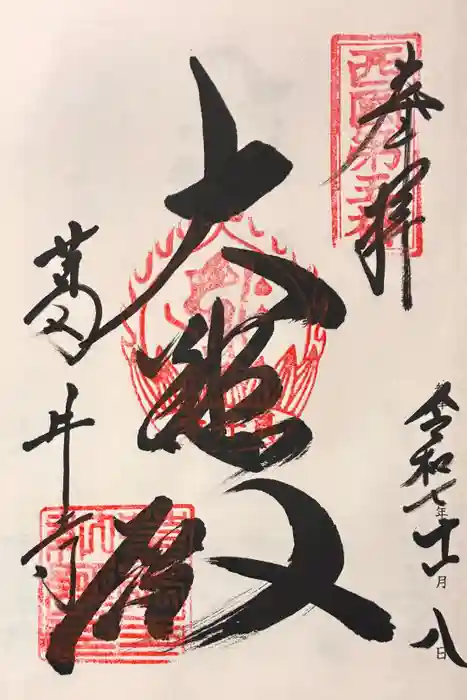 奉拝
西国第五番
大悲殿
葛井寺
令和七年十一月八日